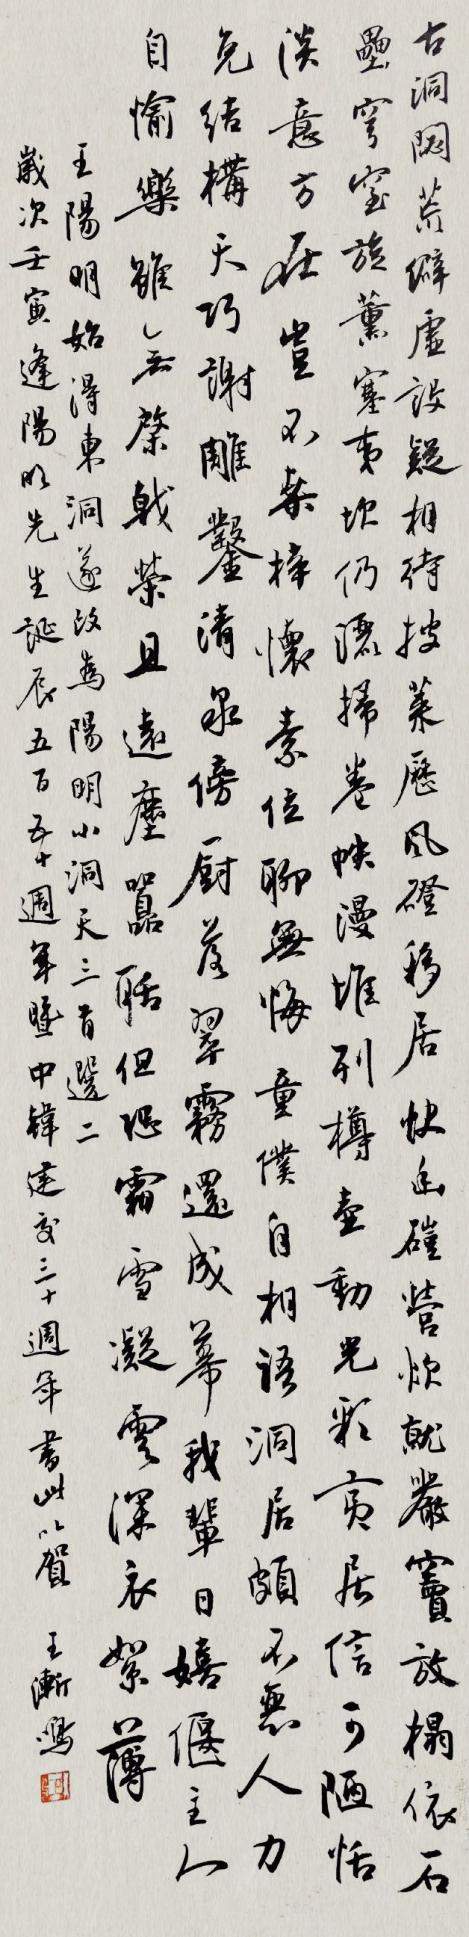 古洞閟荒僻虛設疑相待披萊歷風磴移居快幽磑營炊就巖竇放榻依石
壘穹窒旋薰塞夷坎仍灑掃卷帙漫堆列樽壺動光彩夷居信何陋恬
淡意方在豈不桑梓懷素位聊無悔童僕自相語洞居頗不惡人力
免結構天巧謝雕鑿清泉傍廚落翠霧還成幕我輩日嬉偃主人
自愉樂雖無棨戟榮且遠塵囂聒但恐霜雪凝雲深衣絮薄
王陽明始得東洞遂改為陽明小洞天三首選二
歲次壬寅逢陽明先生誕辰五百五十週年暨中韓建交三十週年書此以賀 王漸鳴